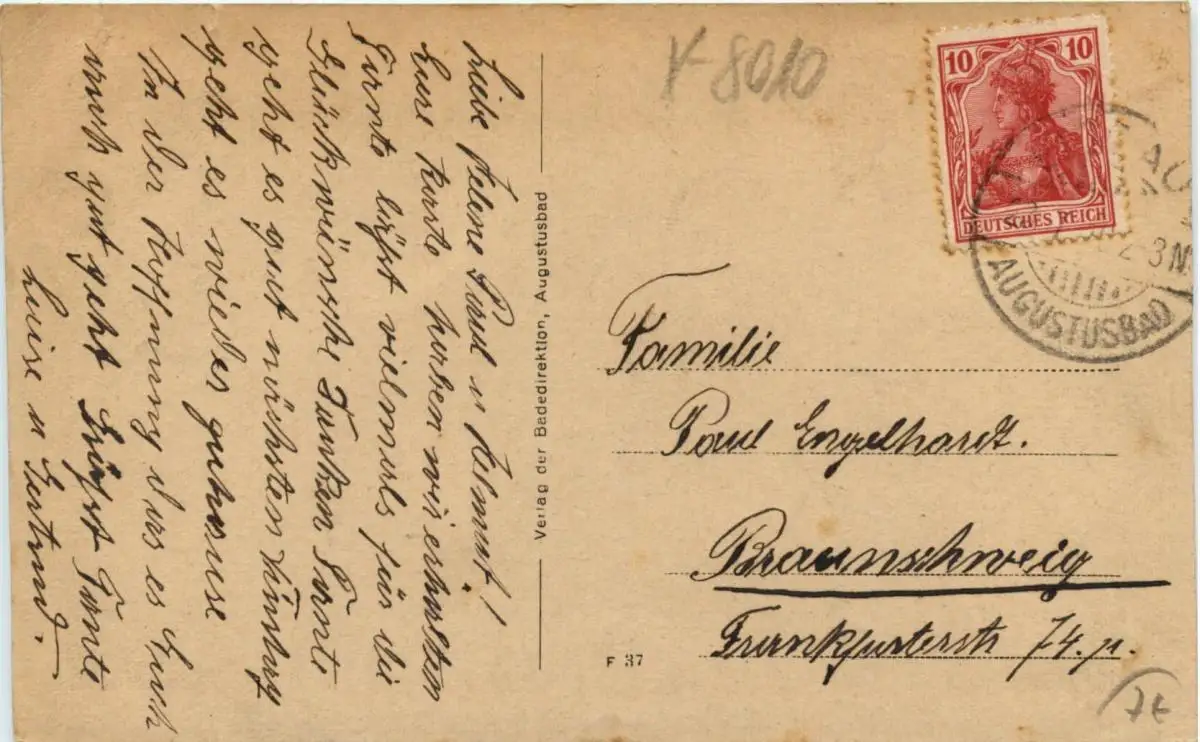 Liebe Helene Paul u Helmut!
Eure Karte haben wir erhalten
Tante läßt vielmals für die
Glückwünsche Danken Sonst
geht es gut nächsten Dinstag
geht es wieder zuhause
In der Hoffnung das es Euch
auch gut geht Grüßt Tante
Luise u Gertrud.
Verlag der Badedirektion, Augustusbad
F 37
8010
10 10
DEUTSCHES REICH
2-3N
AUGUSTUSBAD
Familie
Paul Engelhardt.
Braunschweig
Frankfurterstr 74.